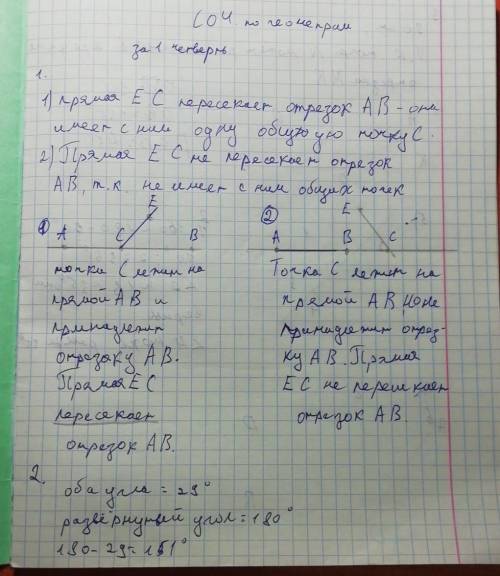 СОЧ по геометрии
за 1 четверть.
1.
1) прямая EC пересекает отрезок AB - она
имеет с ним одну общую точку C.
2) Прямая EC не пересекает отрезок
AB, т.к. не имеет с ним общих точек
1 A C E B
точка C лежит на
прямой AB и
принадлежит
отрезку AB.
Прямая EC
пересекает
отрезок AB.
2 A B E C
Точка C лежит на
прямой AB, но не
принадлежит отрез-
ку AB. Прямая
EC не пересекает
отрезок AB.
2.
оба угла = 29°
развёрнутый угол = 180°
180-29=151°